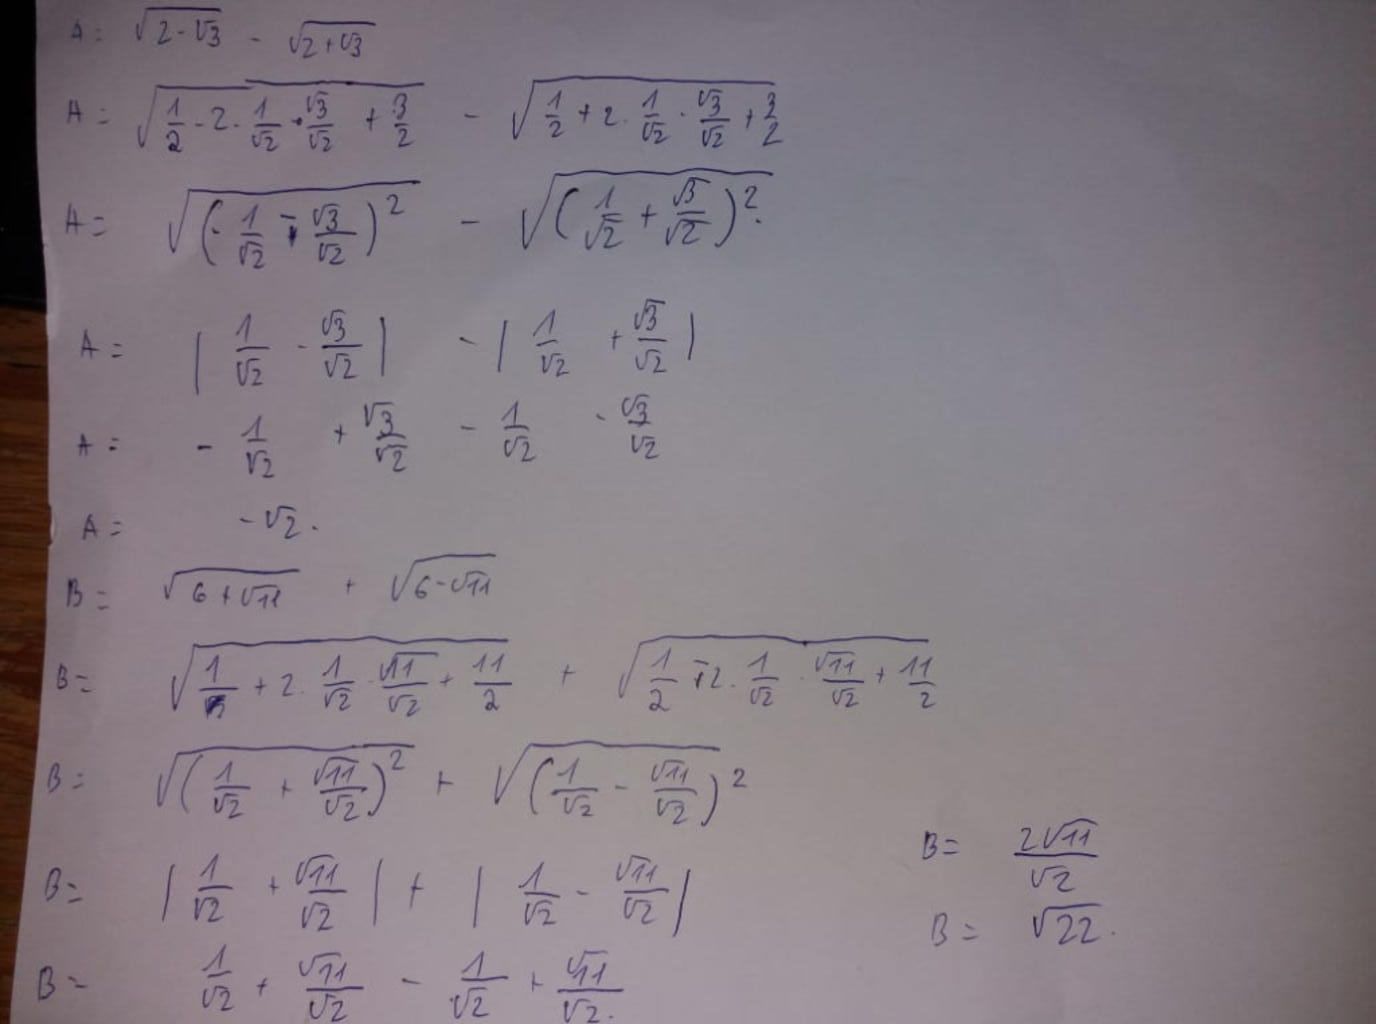 A = √(2-√3) - √(2+√3)
A = √(1/2 - 2 · 1/√2 · √3/√2 + 3/2) - √(1/2 + 2 · 1/√2 · √3/√2 + 3/2)
A = √((1/√2 - √3/√2)²) - √((1/√2 + √3/√2)²)
A = |1/√2 - √3/√2| - |1/√2 + √3/√2|
A = - 1/√2 + √3/√2 - 1/√2 - √3/√2
A = -√2.
B = √(6+√11) + √(6-√11)
B = √(1/2 + 2 · 1/√2 · √11/√2 + 11/2) + √(1/2 - 2 · 1/√2 · √11/√2 + 11/2)
B = √((1/√2 + √11/√2)²) + √((1/√2 - √11/√2)²)
B = |1/√2 + √11/√2| + |1/√2 - √11/√2|
B = 1/√2 + √11/√2 - 1/√2 + √11/√2.
B = 2√11/√2
B = √22.